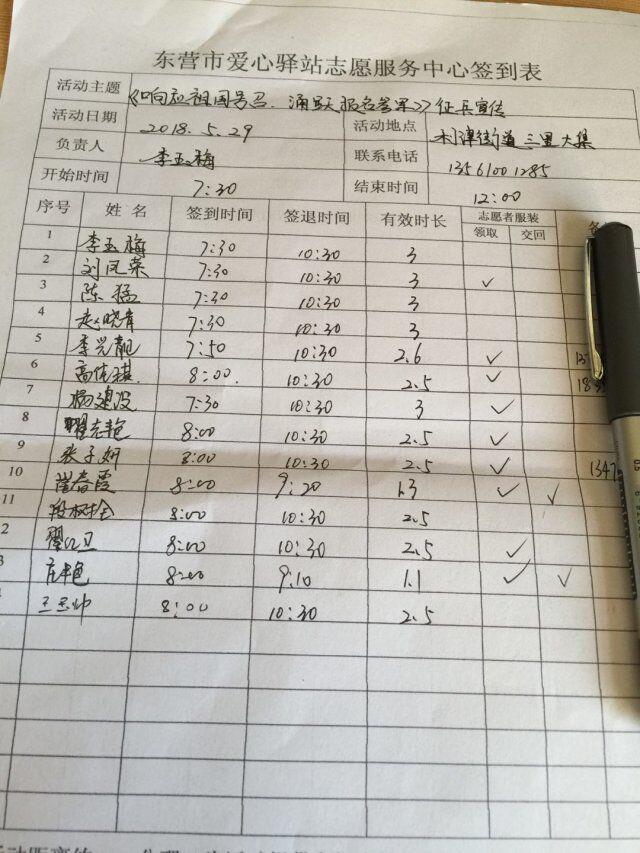 东营市爱心驿站志愿服务中心签到表
活动主题 《响应祖国号召、踊跃报名参军》征兵宣传
活动日期 2018.5.29 活动地点 利津街道三里大集
负责人 李玉梅 联系电话 13561001285
开始时间 7:30 结束时间 12:00
序号 姓名 签到时间 签退时间 有效时长 志愿者服装 领取 交回
1 李玉梅 7:30 10:30 3
2 刘凤荣 7:30 10:30 3 ✓
3 陈猛 7:30 10:30 3
4 赵晓青 7:30 10:30 3
5 李兴靓 7:50 10:30 2.6 ✓
6 高佳琪 8:00 10:30 2.5 ✓
7 杨建波 7:30 10:30 3 ✓
8 8:00 10:30 2.5 ✓
9 张子妍 8:00 10:30 2.5 ✓ 1347
10 崔春霞 8:00 9:20 1.3 ✓ ✓
11 段树全 8:00 10:30 2.5
2 8:00 10:30 2.5 ✓
8:00 9:10 1.1 ✓ ✓
8:00 10:30 2.5